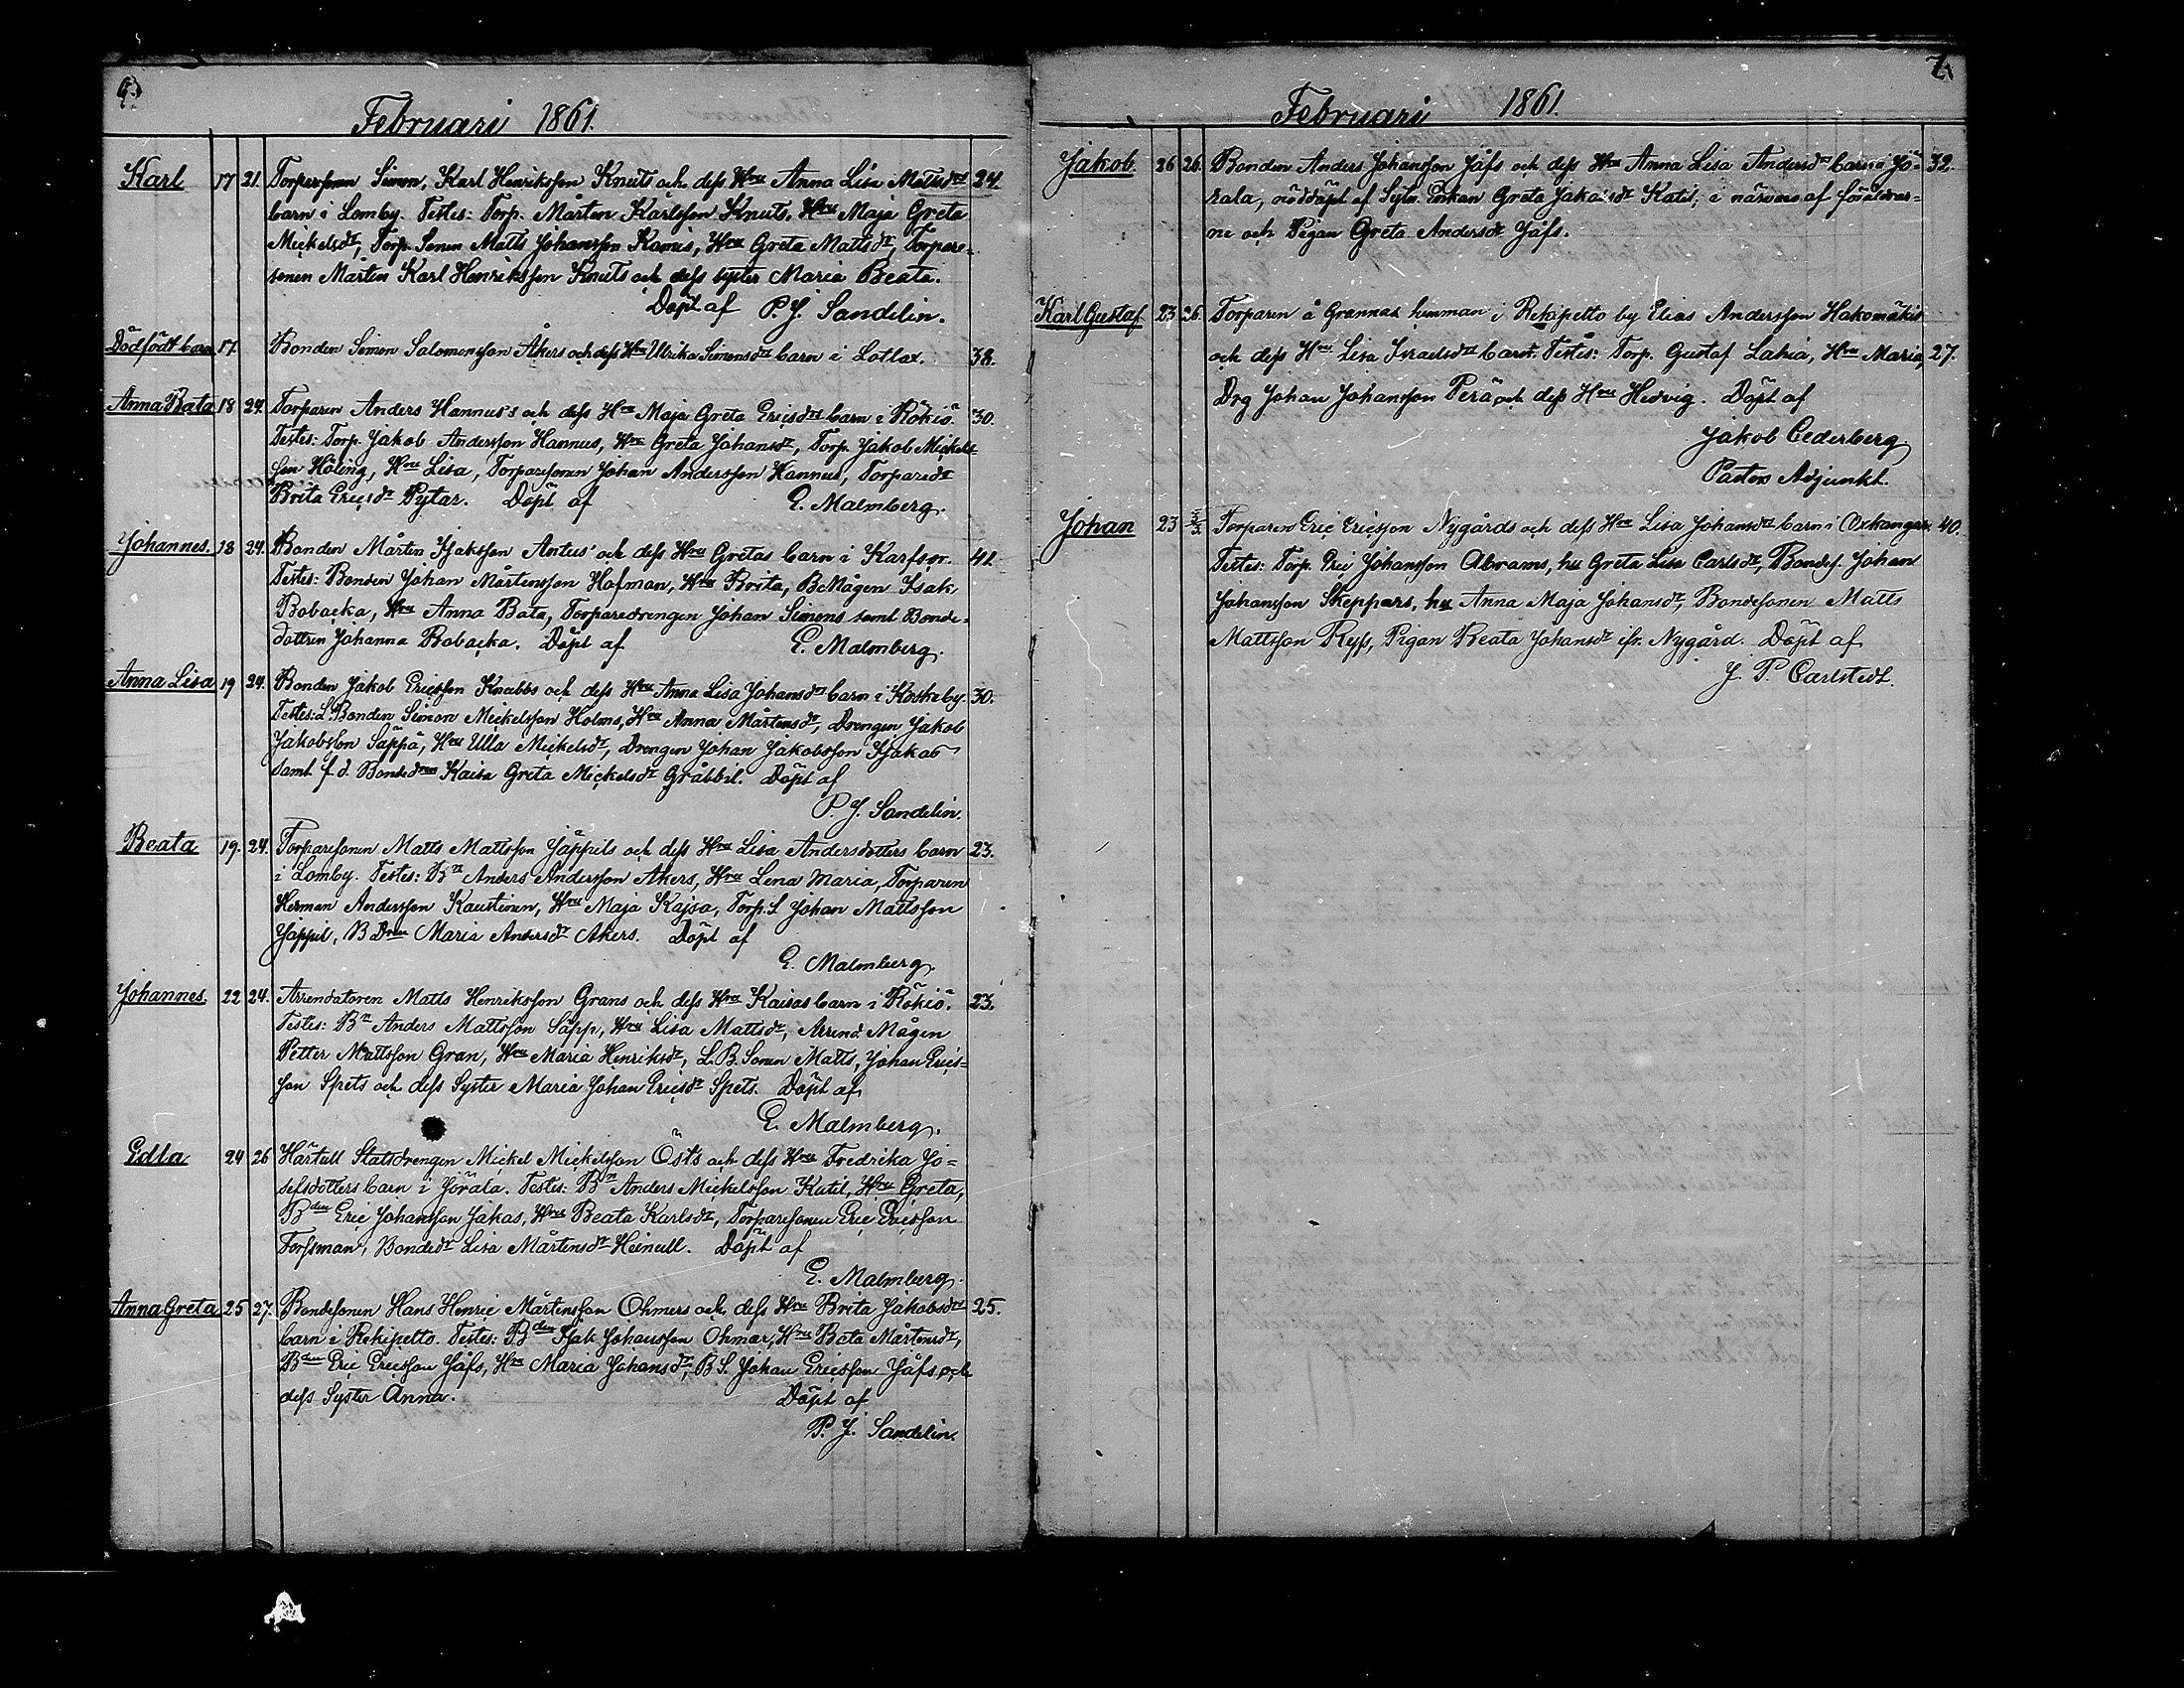 6.
Februari 1861.
Karl 17 21. Torparesonen Simon, Karl Henriksson Knuts och dess Hru Anna Lisa Mattsdrs 24.
barn i Lomby. Testes: Torp. Mårten Karlsson Knuts, Hru Maja Greta
Mickelsdr, Torp. Sonen Matts Johansson Kamis, Hru Greta Mattsdr, Torpare-
sonen Mårten Karl Henriksson Knuts och dess syster Maria Beata.
Döpt af P. J. Sandelin.
Dödfödt barn 17. Bonden Simon Salomonsson Åkers och dess Hru Ulrika Simonsdrs barn i Lotlax. 38.
Anna Bata 18 24. Torparen Anders Hannus's och dess Hru Maja Greta Ericsdrs barn i Rökiö. 30.
Testes: Torp. Jakob Andersson Hannus, Hru Greta Johansdr, Torp. Jakob Mickels-
son Höling, Hru Lisa, Torparesonen Johan Andersson Hannus, Torparedr
Brita Ericsdr Pytar. Döpt af E. Malmberg.
Johannes. 18 24. Bonden Mårten Isaksson Antus' och dess Hru Gretas barn i Karfsor. 41.
Testes: Bonden Johan Mårtensson Hofman, Hru Brita, BcMågen Isak
Bobacka, Hru Anna Bata, Torparedrengen Johan Simons samt Bonde-
dottren Johanna Bobacka. Döpt af E. Malmberg.
Anna Lisa 19 24. Bonden Jakob Ericsson Knabbs och dess Hru Anna Lisa Johansdrs barn i Koskeby. 30.
Testes: L.Bonden Simon Mickelsson Holms, Hru Anna Mårtensdr, Drengen Jakob
Jakobsson Säppä, Hru Ulla Mickelsdr, Drengen Johan Jakobsson Isjakas
samt f. d. Bondedren Kaisa Greta Mickelsdr Gråbbil. Döpt af
P. J. Sandelin.
Beata 19. 24. Torparesonen Matts Mattsson Jåppils och dess Hru Lisa Andersdotters barn 23.
i Lomby. Testes: Bn Anders Andersson Akers, Hru Lena Maria, Torparen
Herman Andersson Kaustinen, Hru Maja Kajsa, Torp. S Johan Mattsson
Jåppil, B Dren Maria Andersdr Akers. Döpt af
E. Malmberg.
Johannes 22 24. Arrendatoren Matts Henriksson Grans och dess Hru Kaisas barn i Rökiö. 23.
Testes: Bn Anders Mattsson Säpp, Hru Lisa Mattsdr, Arrend. Mågen
Petter Mattsson Gran, Hru Maria Henriksdr, L. B. Sonen Matts, Johan Erics-
son Spets och dess Syster Maria Johan Ericsdr Spets. Döpt af
E. Malmberg.
Edla 24 26 Härtull Statsdrengen Mickel Mickelsson Östs och dess Hru Fredrika Jo-
sefsdotters barn i Jörala. Testes: Bn Anders Mickelsson Katil, Hru Greta,
Bden Eric Johansson Jakas, Hru Beata Karlsdr, Torparesonen Eric Ericsson
Forssman, Bondedr Lisa Mårtensdr Heinull. Döpt af
E. Malmberg.
Anna Greta 25 27. Bondesonen Hans Henric Mårtensson Ohmers och dess Hru Brita Jakobsdrs 25.
barn i Rekipetto. Testes: Bden Isak Johansson Ohmar, Hru Bata Mårtensdr,
Bden Eric Ericsson Jåfs, Hru Maria Johansdr, B S. Johan Ericsson Jåfs och
dess Syster Anna. Döpt af
P. J. Sandelin.
7.
Februari 1861.
Jakob. 26 26. Bonden Anders Johansson Jåfs och dess Hru Anna Lisa Andersdrs barn i Jö- 32.
rala, nöddöpt af Sytn. Enkan Greta Jakobsdr Katil, i närvaro af föräldrar-
ne och Pigan Greta Andersdr Jåfs.
Karl Gustaf 23 26. Torparen å Grannas hemman i Rekipetto by Elias Andersson Hakomäkis
och dess Hru Lisa Israelsdrs barn. Testes: Torp. Gustaf Lahia, Hru Maria, 27.
Drg Johan Johansson Perä och dess Hru Hedvig. Döpt af
Jakob Cederberg.
Pastors Adjunkt.
Johan 23 3/3. Torparen Eric Ericsson Nygårds och dess Hru Lisa Johansdrs barn i Oxkangar. 40.
Testes: Torp. Eric Johansson Abrams, hu Greta Lisa Carlsdr, Bondes. Johan
Johansson Skeppars, hu Anna Maja Johansdr, Bondesonen Matts
Mattsson Ryss, Pigan Beata Johansdr ifr. Nygård. Döpt af
J. P. Carlstedt.